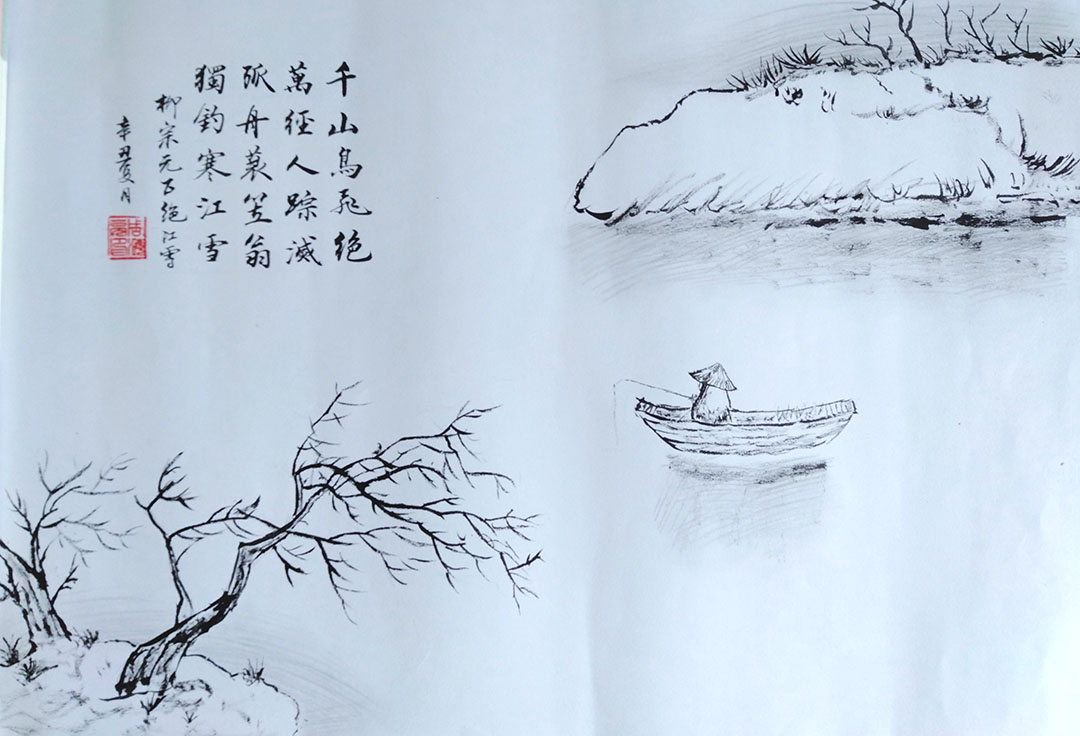 千山鳥飛絶
萬徑人踪滅
孤舟蓑笠翁
獨釣寒江雪
柳宗元五絶江雪
辛丑夏月